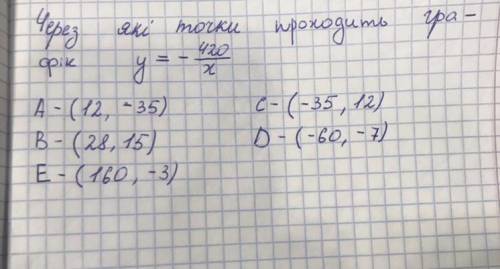 Через які точки проходить гра-
фік y = - 420/x
A - (12, -35) C - (-35, 12)
B - (28, 15) D - (-60, -7)
E - (160, -3)